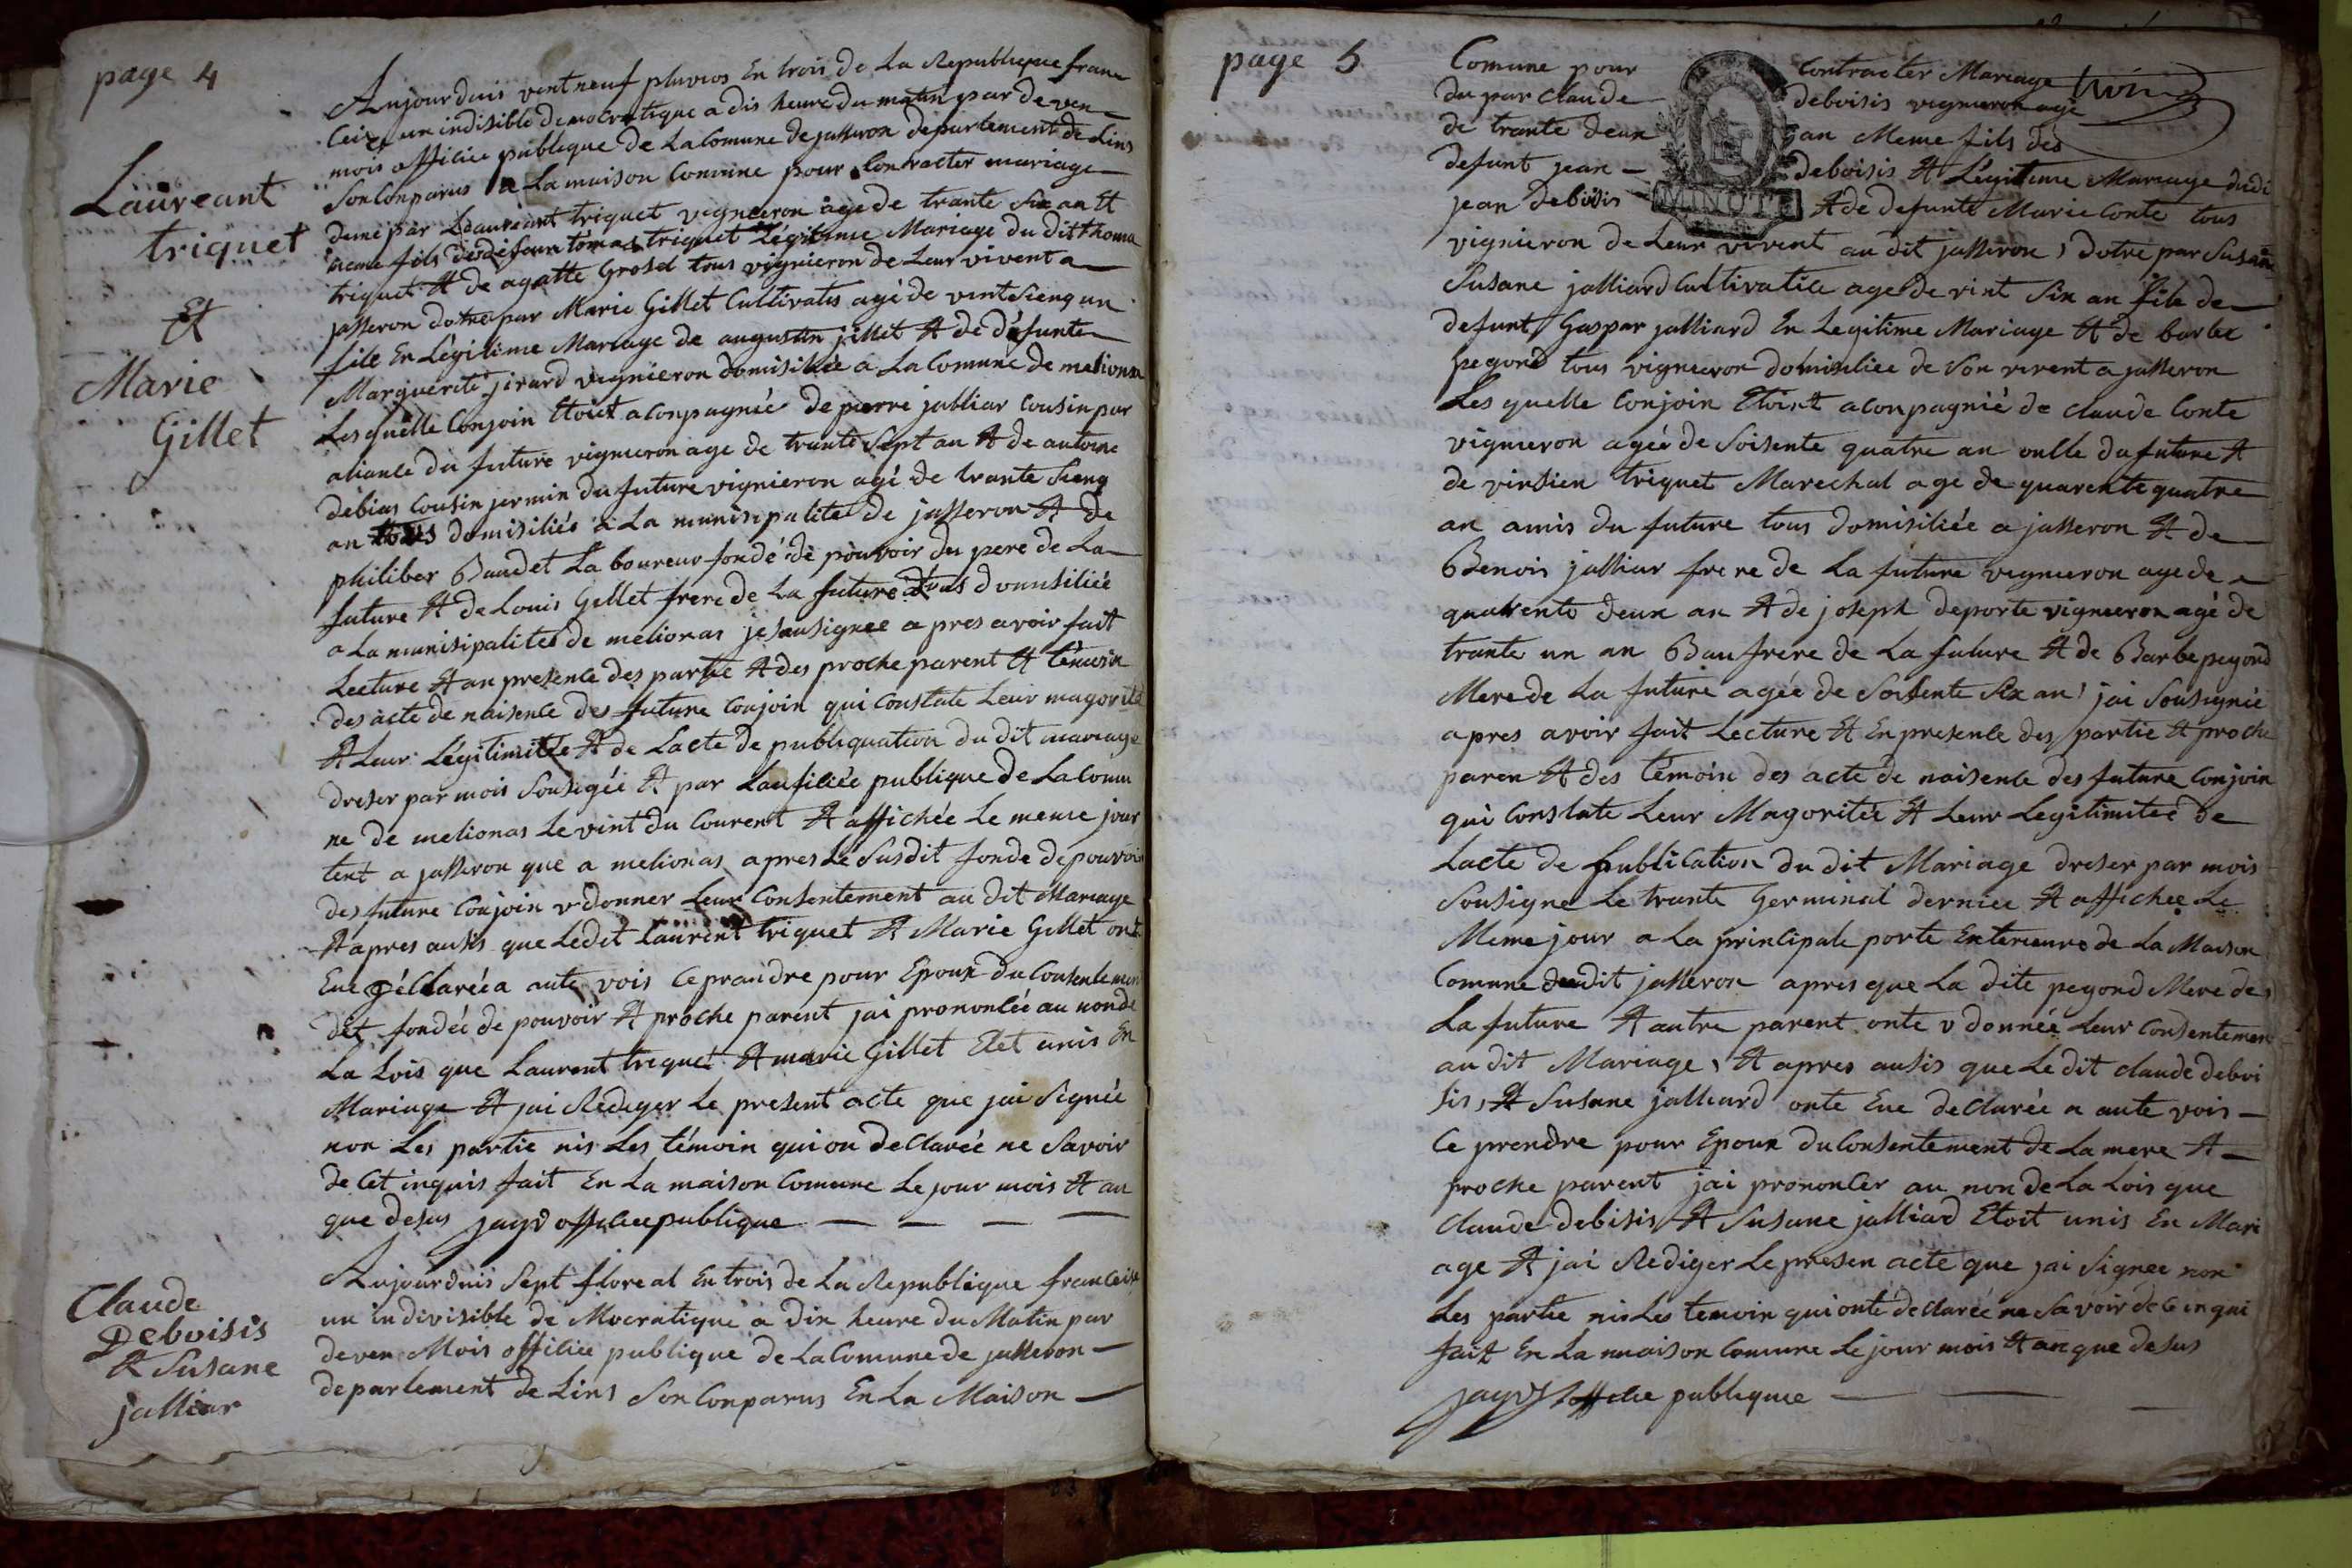 page 4
Laureant
triquet
Et
Marie
Gillet
Aujourduis vent neuf pluvios En trois de La Republique franc
Ceize un indisible democratique a dis heure du matin par de ven
mois officiee publique de La Comune de jasseron departement de Lins
Son Conparus a La maison Comune pour Contracter mariage
dune par Leaureant triquet vignieron age de trante Six an Et
meme fils des defeun tomas triquet Légitime Mariage du dit thoma
triquet Et de agatte Grosel tous vignieron de Leur vivent a
jasseron dotre par Marie Gillet Cultivatis agé de vint Sienq an
file En Légitime Mariage de augustin jillet Et de défunte
Marguerite jirard vignieron domisiliée a La Comune de melionna
Les quelle Conjoin Etoiet aConpagniée de pierre jalliar Cousin par
alianse du future vignieron age de trante Sept an Et de antoine
debias Cousin jermin du future vignieron agé de trante Sienq
an tous domisiliés a La munisipalite de jasseron Et de
philiber Baudet La boureur fondé de pouvoir du pere de La
future Et de Louis Gillet frere de La future tous doumisiliée
a La munisipalites de melionas je Sousignee a pres avoir fait
Lecture Et an presence des partie Et des proche parent Et témoin
des acte de naisence des future Conjoin qui Constate Leur magorité
Et Leur Légitimitée Et de Lacte de publiquation du dit mariage
dreser par mois Sousigée Et par Laufisiée publique de La Comu
ne de melionas Le vint du Courent Et affichée Le meme jour
tent a jasseron que a melionas apres Le Susdit fonde de pouvoir
des future Conjoin v donner Leur Consentement au dit Mariage
Et apres ausis que Ledit Laurent triquet Et Marie Gillet ont
Eue déClarée a aute vois Ce prandre pour Epoux du Consentemen
dit fondée de pouvoir Et proche parent jai prononcée au non de
La Lois que Laurent trequet Et marie Gillet Etet unis En
Mariage Et jai Rediger Le present acte que jai Signée
non Les partie nis Les témoin qui on declarée ne Savoir
de Cet inquis fait En La maison Comune Le jour mois Et an
que desus jayr officee publique
Claude
Deboisis
Et Susane
jalliar
Aujourduis Sept floreal En trois de La Republique franceise
un indivisible de Mocratique a dix heure du Matin par
deven Mois officiee publique de La Comune de jasseron
departement de Lins Son Conparus En La Maison
page 5
Comune pour Contracter Mariage
du par Claude deboisis vignieron age
de trante deux an Meme fils des
defunt jean deboisis Et Légitime Mariage dudi
jean deboisis Et de defunte Marie Conte tous
MINUTE
vignieron de Leur vivent au dit jasseron, dotre par Susane
Susane jalliard Cultivatice age de vint Six an file de
defunt Gaspar jalliard En Legitime Mariage Et de barbe
pegond tous vignieron domisiliee de Son vivent a jasseron
Les quelle Conjoin Etoint aConpagnié de Claude Conte
vignieron agée de Soisente quatre an onlle du future Et
de vinsien triquet Marechal age de quarente quatre
an amis du future tous domisiliée a jasseron Et de
Benois jalliar frere de La future vignieron age de
quatrente deux an Et de joseph deporte vignieron agé de
trante un an Baufrere de La future Et de Barbe pegond
Mere de La future agée de Soisente Six an, jai Sousignée
apres avoir fait Lecture Et En presence des partie Et proche
paren Et des témoin des acte de naisence des future Conjoin
qui Constate Leur Magoritée Et Leur Legitimitee de
Lacte de publication du dit Mariage dreser par mois
Sousigne Le trante Germinal derniee Et affichee Le
Meme jour a La principale porte Enterieure de La Maison
Comune dudit jasseron apres que La dite pegond Mere de
La future Et autre parent onte v donnée Leur Consentemen
au dit Mariage, Et apres ausis que Le dit Claude deboi
sis, Et Susane jalliard onte Eue deClarée a aute vois
Ce prendre pour Epoux du Consentement de La mere Et
proche parent jai prononCer au non de La Lois que
Claude debisis Et Susane jalliard Etoit unis En Mari
age Et jai Rediger Le presen acte que jai Signee non
Les partie nis Les temoin qui onte declarée ne Savoir de Ce inqui
fait En La maison Comune Le jour mois Et an que desus
jayr officie publique